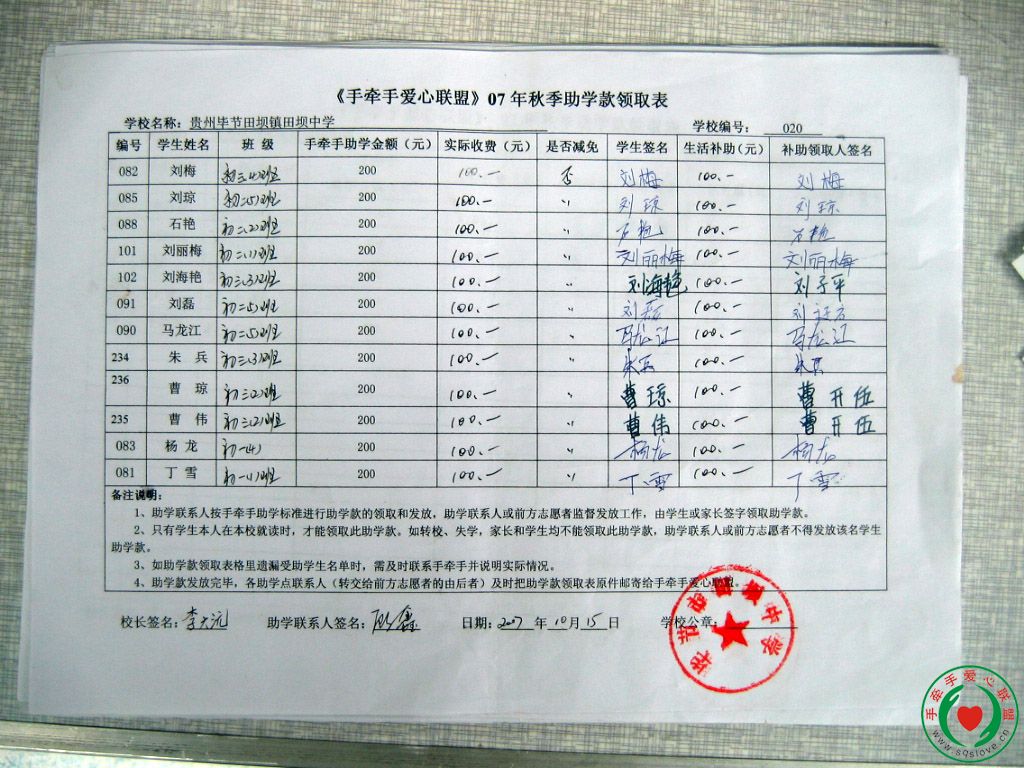 《手牵手爱心联盟》07 年秋季助学款领取表
学校名称：贵州毕节田坝镇田坝中学 学校编号： 020
编号 学生姓名 班 级 手牵手助学金额（元） 实际收费（元） 是否减免 学生签名 生活补助（元） 补助领取人签名
082 刘梅 初三(4)班 200 100.- 否 刘梅 100.- 刘梅
085 刘琼 初二(5)班 200 100.- 〃 刘琼 100.- 刘琼
088 石艳 初二(2)班 200 100.- 〃 石艳 100.- 石艳
101 刘丽梅 初二(1)班 200 100.- 〃 刘丽梅 100.- 刘丽梅
102 刘海艳 初三(3)班 200 100.- 〃 刘海艳 100.- 刘子平
091 刘磊 初二(5)班 200 100.- 〃 刘磊 100.- 刘
090 马龙江 初二(5)班 200 100.- 〃 马龙江 100.- 马龙江
234 朱 兵 初三(3)班 200 100.- 〃 朱兵 100.- 朱兵
236 曹 琼 初三(2)班 200 100.- 〃 曹琼 100.- 曹开伍
235 曹 伟 初三(2)班 200 100.- 〃 曹伟 100.- 曹开伍
083 杨 龙 初一(4) 200 100.- 〃 杨龙 100.- 杨龙
081 丁 雪 初一(1)班 200 100.- 〃 丁雪 100.- 丁雪
备注说明：
1、助学联系人按手牵手助学标准进行助学款的领取和发放，助学联系人或前方志愿者监督发放工作，由学生或家长签字领取助学款。
2、只有学生本人在本校就读时，才能领取此助学款。如转校、失学，家长和学生均不能领取此助学款，助学联系人或前方志愿者不得发放该名学生
助学款。
3、如助学款领取表格里遗漏受助学生名单时，需及时联系手牵手并说明实际情况。
4、助学款发放完毕，各助学点联系人（转交给前方志愿者的由后者）及时把助学款领取表原件邮寄给手牵手爱心联盟。
校长签名： 助学联系人签名： 日期：2007 年 10 月 15 日 学校公章：
手牵手爱心联盟
www.sqslove.cn